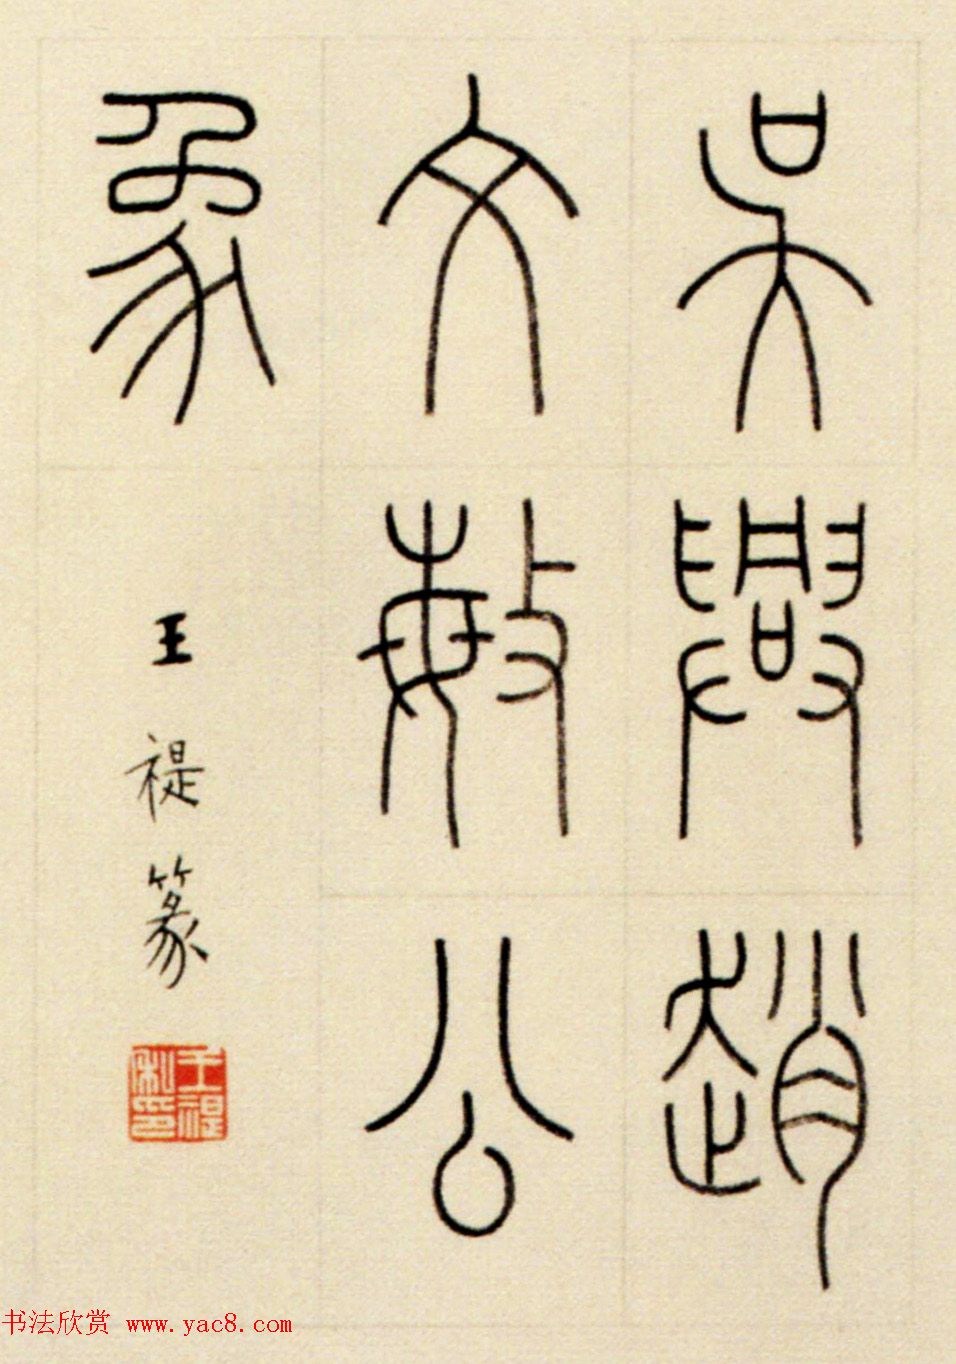 吳興趙
文敏公
象
王禔篆
王禔私印
书法欣赏 www.yac8.com